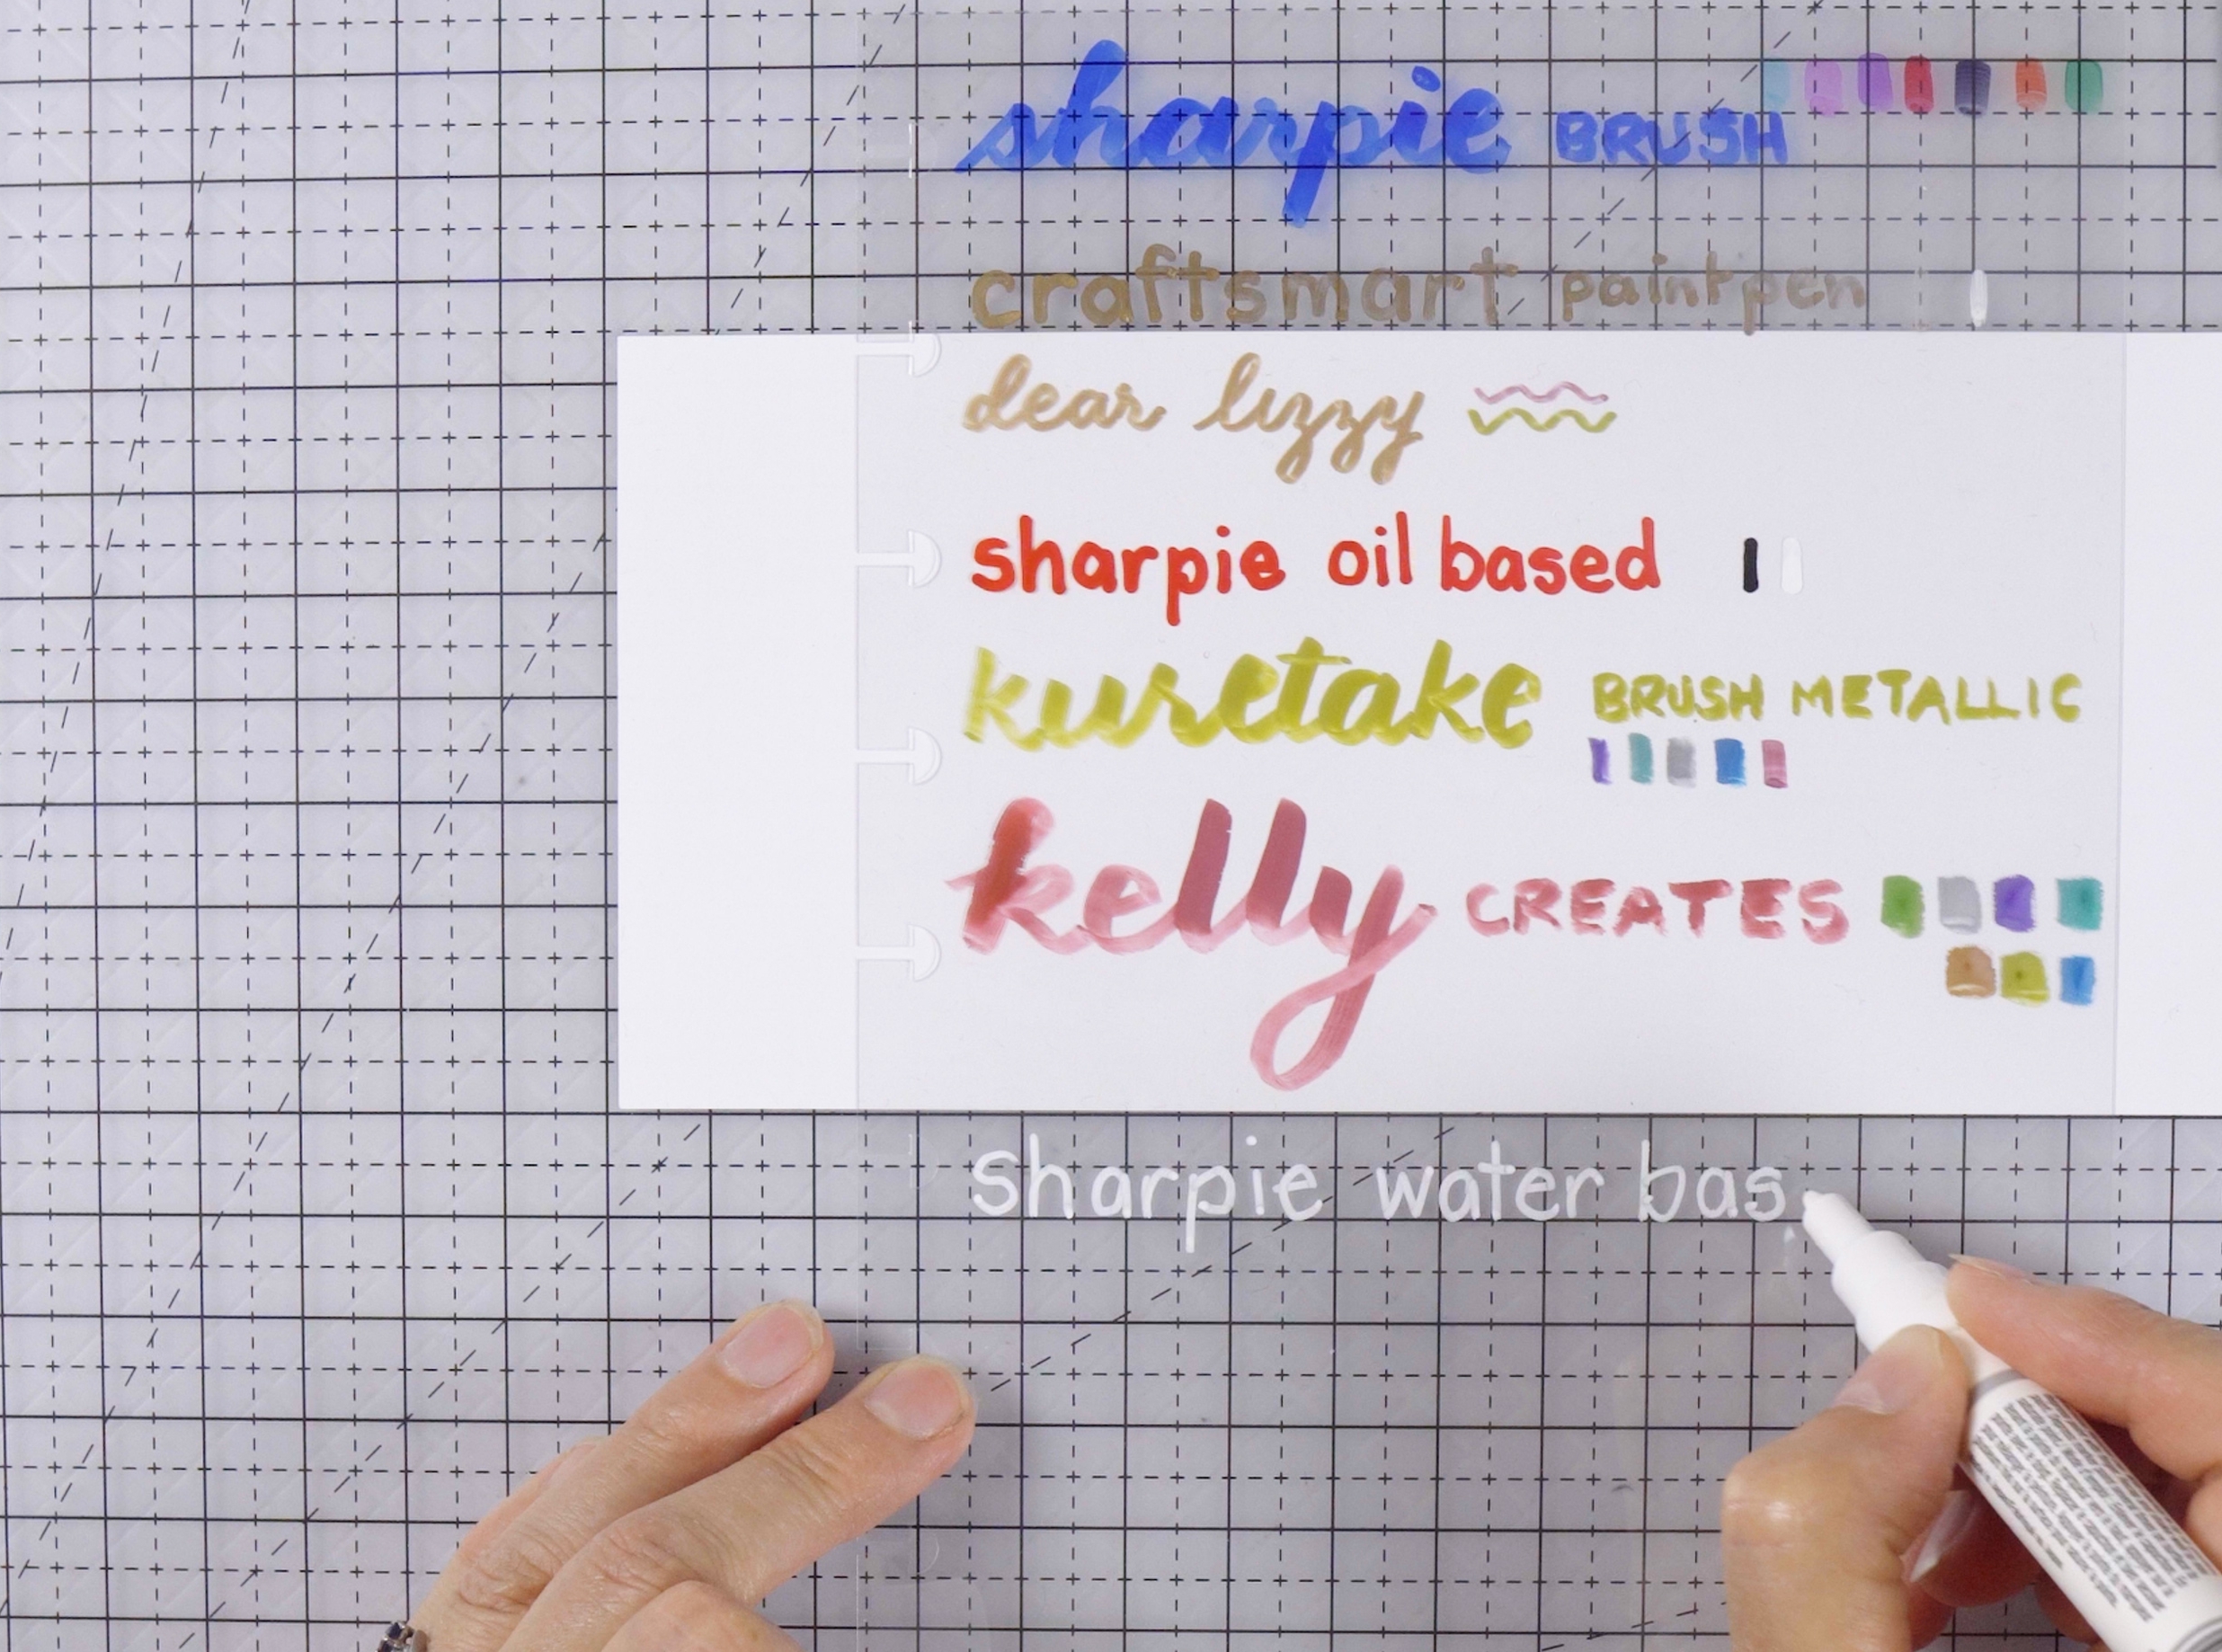 sharpie BRUSH
craftsmart paint pen
dear lizzy
sharpie oil based
kuretake BRUSH METALLIC
kelly CREATES
Sharpie water bas